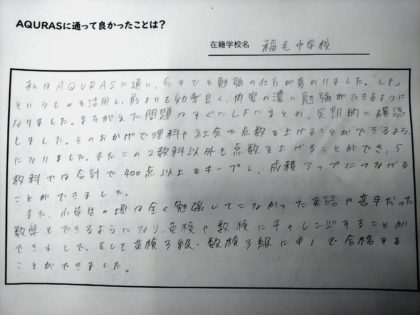 AQURASに通って良かったことは?
在籍学校名 稲毛中学校
私はAQURASに通い、今までと勉強の仕方が変わりました。「LF」
というものを活用し、前よりも効率良く、内容の濃い勉強ができるように
なりました。まちがえた問題はすぐにLFにまとめ、定期的に確認
しました。そのおかげで理科や社会で点数を上げることができるよう
になりました。またこの2教科以外も点数を上げることができ、5
教科では合計で400点以上をキープし、成績アップにつなげる
ことができました。
また、小学生の頃は全く勉強してこなかった英語や苦手だった
数学もできるようになり、英検や数検にチャレンジすることが
できました。そして英検3級、数検3級に中1で合格する
ことができました。